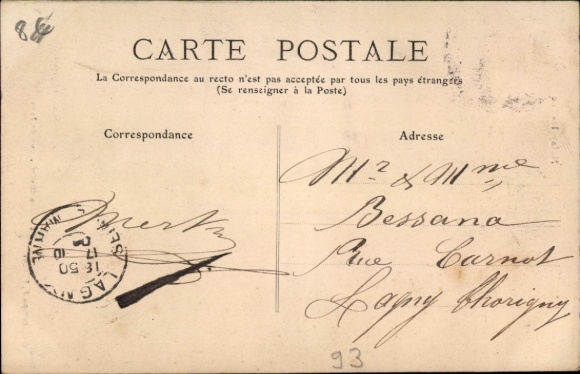 CARTE POSTALE
La Correspondance au recto n'est pas acceptée par tous les pays étrangers
(Se renseigner à la Poste)
Correspondance
Adresse
Mr & Mme
Bessana
Rue Carnot
Lagny Thorigny
LAGNY
SEINE MARNE
18 50
17
10
93